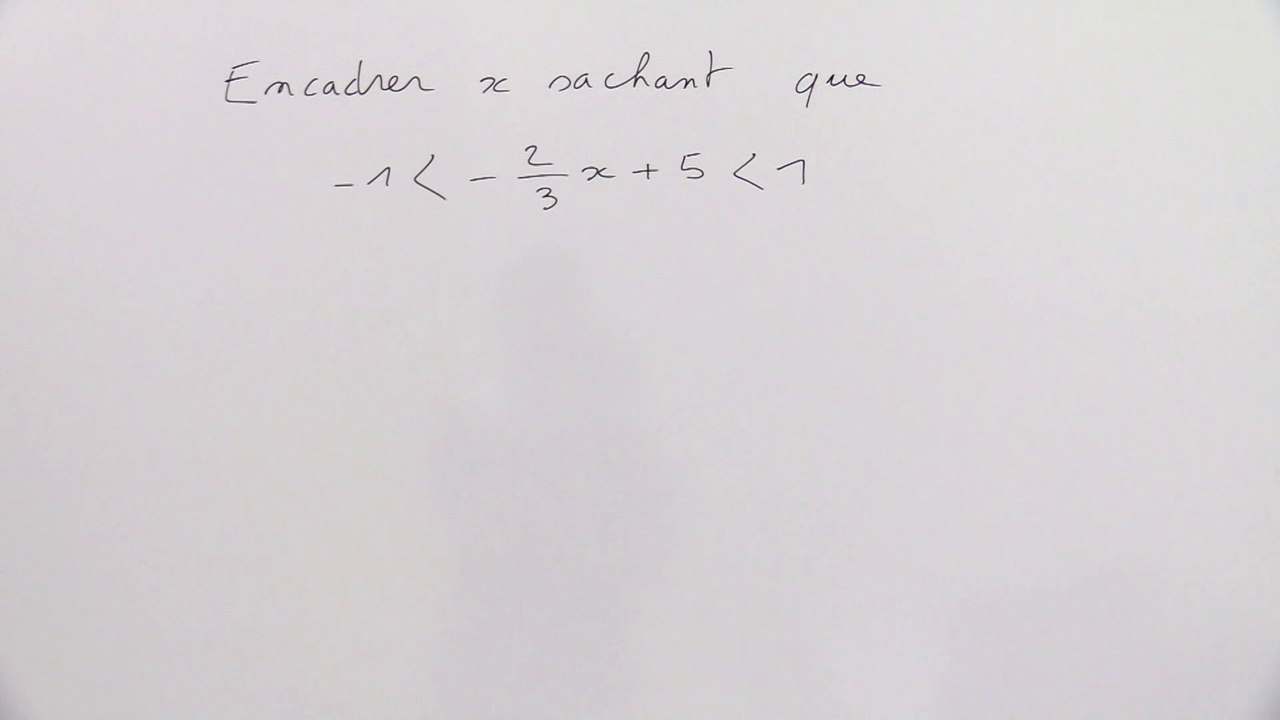 Encadrer x sachant que
-1 < - 2/3 x + 5 < 1